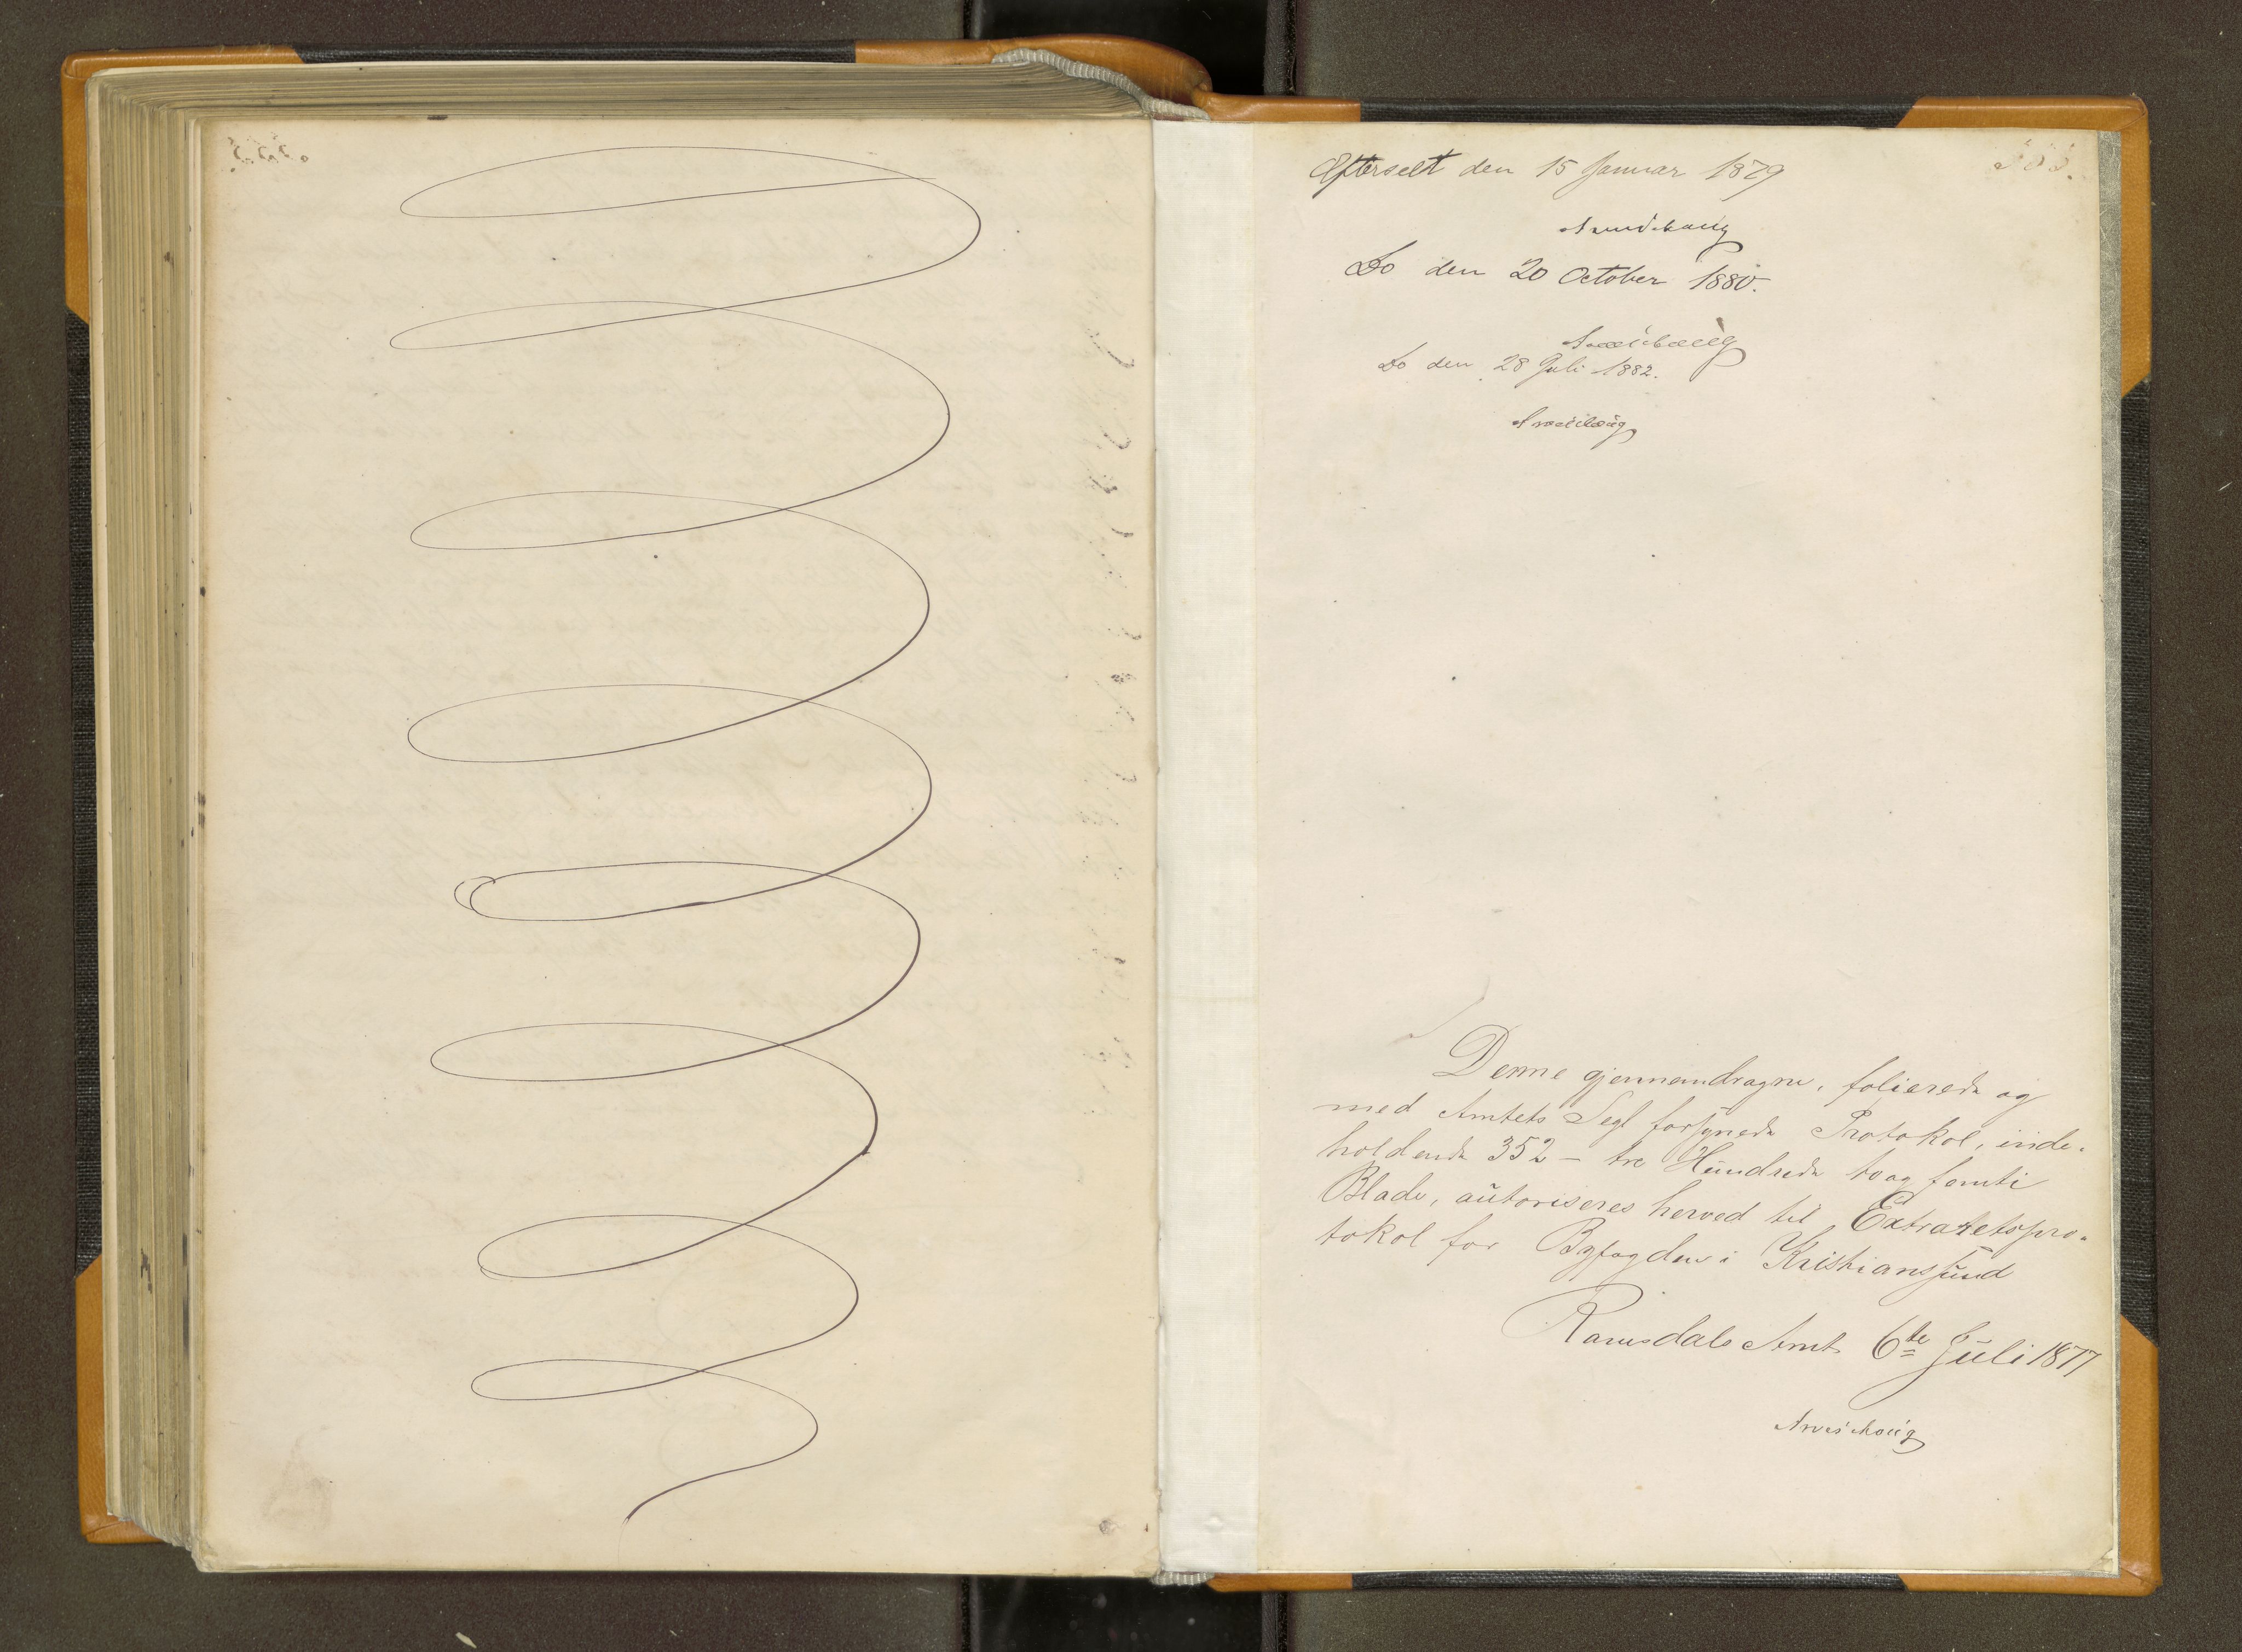 Efterseet den 15 Januar 1879
Do den 20 October 1880.
Do den 28 Juli 1882.
Denne gjennemdragne, folierede og
med Amtets Segl forsynede Protokol, inde-
holdende 352 - tre Hundrede to og femti
Blade, autoriseres herved til Extraretspro-
tokol for Byfogden i Kristianssund
Romsdals Amt 6te Juli 1877